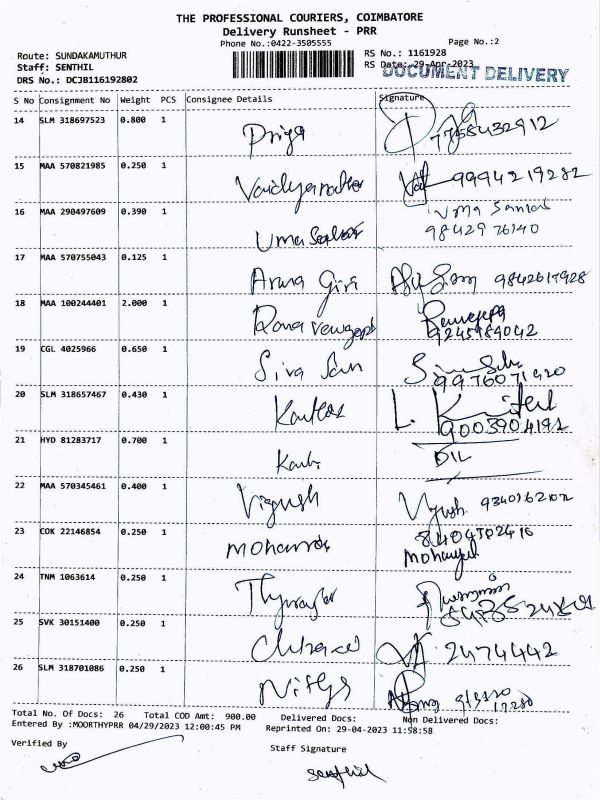 THE PROFESSIONAL COURIERS, COIMBATORE
Delivery Runsheet - PRR
Phone No.:0422-3505555
Page No.:2
Route: SUNDAKAMUTHUR
RS No.: 1161928
Staff: SENTHIL
RS Date: 29-Apr-2023
DOCUMENT DELIVERY
DRS No.: DCJB116192802
S No Consignment No Weight PCS Consignee Details Signature
14 SLM 318697523 0.800 1 Priya
15 MAA 570821985 0.250 1 Vaidyanathan 9994219282
16 MAA 290497609 0.390 1 Uma Sankar Uma Sankar
9842976140
17 MAA 570755043 0.125 1 Aruna Giri 9842617928
18 MAA 100244401 2.000 1 Rama
19 CGL 4025966 0.650 1 Siva
9976071420
20 SLM 318657467 0.430 1 L.
9003904192
21 HYD 81283717 0.700 1 DIL
22 MAA 570345461 0.400 1 Vignesh
23 COK 22146854 0.250 1 8404302416
24 TNM 1063614 0.250 1
25 SVK 30151400 0.250 1 2474442
26 SLM 318701086 0.250 1 Nithya
Total No. Of Docs: 26 Total COD Amt: 900.00 Delivered Docs: Non Delivered Docs:
Entered By :MOORTHYPRR 04/29/2023 12:00:45 PM Reprinted On: 29-04-2023 11:58:58
Verified By
Staff Signature
Senthil